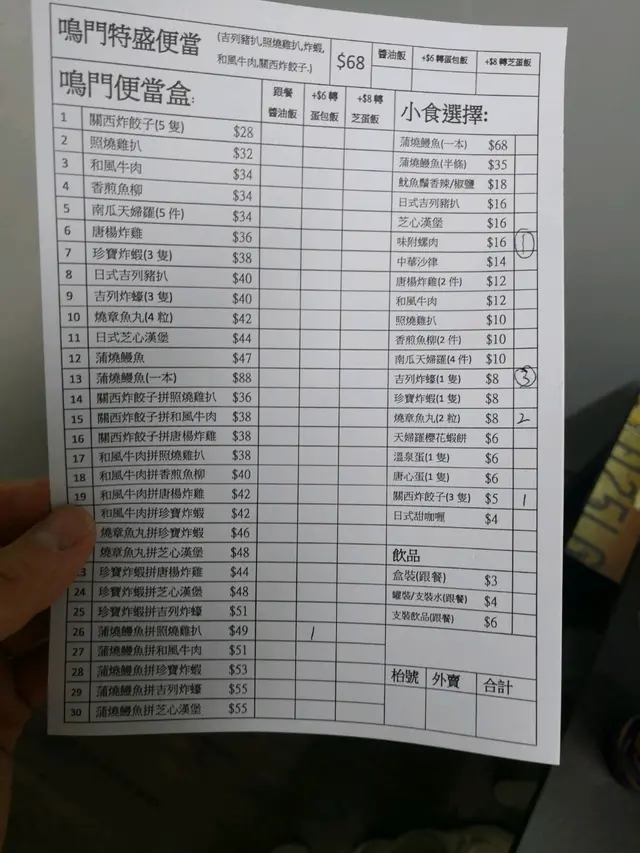 鳴門特盛便當 (吉列豬扒,照燒雞扒,炸蝦,
和風牛肉,關西炸餃子.) $68 醬油飯 +$6 轉蛋包飯 +$8 轉芝蛋飯
鳴門便當盒: 跟餐醬油飯 +$6 轉蛋包飯 +$8 轉芝蛋飯
1 關西炸餃子(5 隻) $28
2 照燒雞扒 $32
3 和風牛肉 $34
4 香煎魚柳 $34
5 南瓜天婦羅(5 件) $34
6 唐楊炸雞 $36
7 珍寶炸蝦(3 隻) $38
8 日式吉列豬扒 $40
9 吉列炸蠔(3 隻) $40
10 燒章魚丸(4 粒) $42
11 日式芝心漢堡 $44
12 蒲燒鰻魚 $47
13 蒲燒鰻魚(一本) $88
14 關西炸餃子拼照燒雞扒 $36
15 關西炸餃子拼和風牛肉 $38
16 關西炸餃子拼唐楊炸雞 $38
17 和風牛肉拼照燒雞扒 $38
18 和風牛肉拼香煎魚柳 $40
19 和風牛肉拼唐楊炸雞 $42
和風牛肉拼珍寶炸蝦 $42
燒章魚丸拼珍寶炸蝦 $46
燒章魚丸拼芝心漢堡 $48
3 珍寶炸蝦拼唐楊炸雞 $44
24 珍寶炸蝦拼芝心漢堡 $48
25 珍寶炸蝦拼吉列炸蠔 $51
26 蒲燒鰻魚拼照燒雞扒 $49 1
27 蒲燒鰻魚拼和風牛肉 $51
28 蒲燒鰻魚拼珍寶炸蝦 $53
29 蒲燒鰻魚拼吉列炸蠔 $55
30 蒲燒鰻魚拼芝心漢堡 $55
小食選擇:
蒲燒鰻魚(一本) $68
蒲燒鰻魚(半條) $35
魷魚鬚香辣/椒鹽 $18
日式吉列豬扒 $16
芝心漢堡 $16
味附螺肉 $16 1
中華沙律 $14
唐楊炸雞(2 件) $12
和風牛肉 $12
照燒雞扒 $10
香煎魚柳(2 件) $10
南瓜天婦羅(4 件) $10
吉列炸蠔(1 隻) $8 3
珍寶炸蝦(1 隻) $8
燒章魚丸(2 粒) $8 2
天婦羅櫻花蝦餅 $6
溫泉蛋(1 隻) $6
唐心蛋(1 隻) $6
關西炸餃子(3 隻) $5 1
日式甜咖喱 $4
飲品
盒裝(跟餐) $3
罐裝/支裝水(跟餐) $4
支裝飲品(跟餐) $6
枱號 外賣 合計